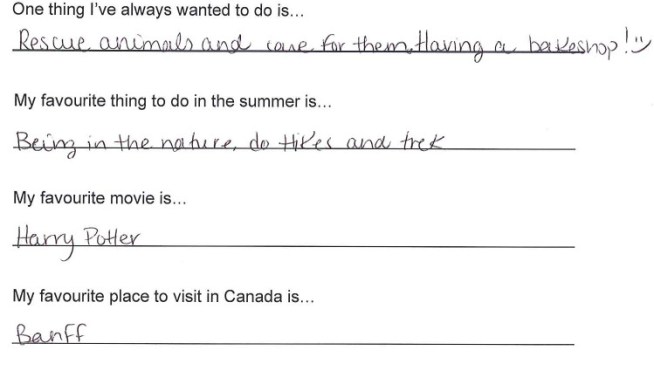 One thing I've always wanted to do is...
Rescue animals and care for them. Having a bakeshop! :)
My favourite thing to do in the summer is...
Being in the nature, do Hikes and trek
My favourite movie is...
Harry Potter
My favourite place to visit in Canada is...
Banff